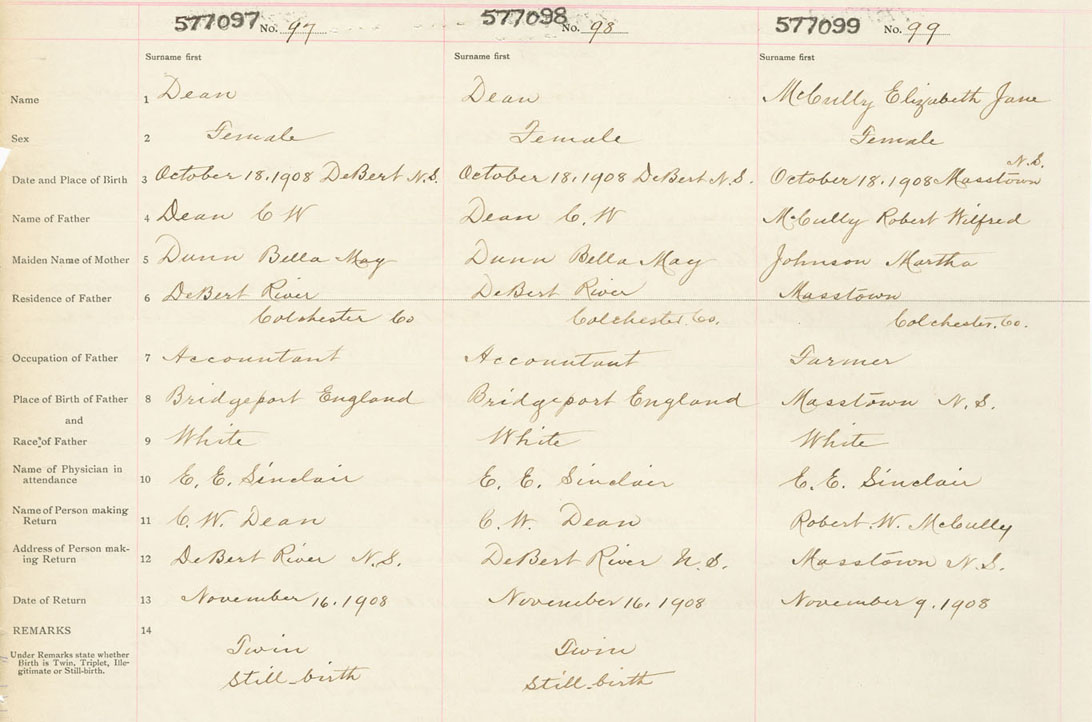 577097 No. 97 577098 No. 98 577099 No. 99
Surname first Surname first Surname first
Name 1 Dean Dean McCully Elizabeth Jane
Sex 2 Female Female Female
N.S.
Date and Place of Birth 3 October 18.1908 DeBert N.S. October 18.1908 DeBert N.S. October 18.1908 Masstown
Name of Father 4 Dean C W Dean C. W McCully Robert Wilfred
Maiden Name of Mother 5 Dunn Bella May Dunn Bella May Johnson Martha
Residence of Father 6 DeBert River DeBert River Masstown
Colchester Co Colchester. Co. Colchester. Co.
Occupation of Father 7 Accountant Accountant Farmer
Place of Birth of Father 8 Bridgeport England Bridgeport England Masstown N.S.
and
Race of Father 9 White White White
Name of Physician in
attendance 10 E. E. Sinclair E. E. Sinclair E.E. Sinclair
Name of Person making
Return 11 C. W. Dean C. W. Dean Robert. W. McCully
Address of Person mak-
ing Return 12 DeBert River N.S. DeBert River N.S. Masstown N.S.
Date of Return 13 November 16.1908 November 16.1908 November 9.1908
REMARKS 14
Under Remarks state whether
Birth is Twin, Triplet, Ille-
gitimate or Still-birth.
Twin Twin
Still-birth Still-birth